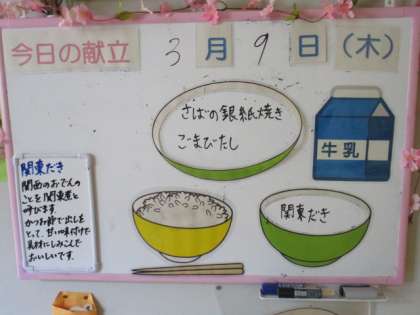 今日の献立 3月9日(木)
さばの銀紙焼き
ごまびたし
牛乳
関東だき
関東だき
関西のおでんの
ことを関東煮と
呼びます
かつお節で出しを
とって、甘い味付けで
具材にしみこんで
おいしいです。